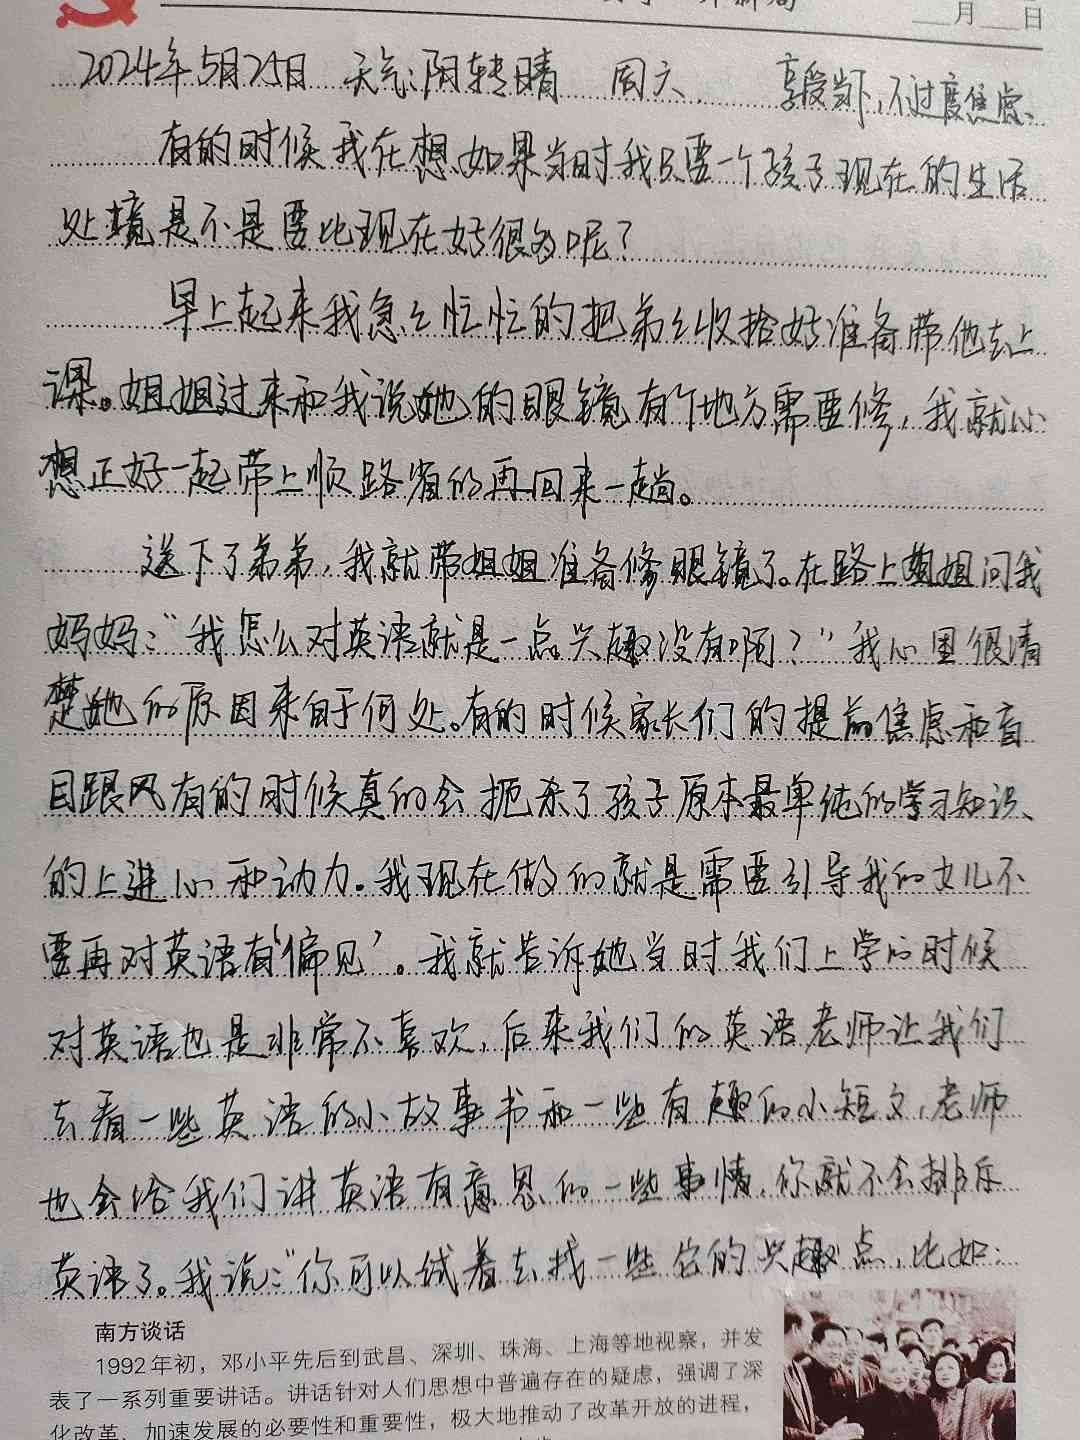 月 日
2024年5月25日 天气:阴转晴 周六. 享受当下,不过度焦虑、
有的时候我在想,如果当时我只要一个孩子现在的生活
处境是不是要比现在好很多呢?
早上起来我急急忙忙的把弟弟收拾好准备带他去上
课。姐姐过来和我说她的眼镜有个地方需要修,我就心
想正好一起带上顺路省的再回来一趟。
送下了弟弟,我就带姐姐准备修眼镜了。在路上姐姐问我
妈妈:“我怎么对英语就是一点兴趣没有啊?”我心里很清
楚她的原因来自于何处。有的时候家长们的提前焦虑和盲
目跟风有的时候真的会扼杀了孩子原本最单纯的学习知识、
的上进心和动力。我现在做的就是需要引导我的女儿不
要再对英语有‘偏见’。我就告诉她当时我们上学的时候
对英语也是非常不喜欢,后来我们的英语老师让我们
去看一些英语的小故事书和一些有趣的小短文,老师
也会给我们讲英语有意思的一些事情,你就不会排斥
英语了。我说:“你可以试着去找一些它的兴趣点,比如:
南方谈话
1992年初,邓小平先后到武昌、深圳、珠海、上海等地视察,并发
表了一系列重要讲话。讲话针对人们思想中普遍存在的疑虑,强调了深
化改革、加速发展的必要性和重要性,极大地推动了改革开放的进程,